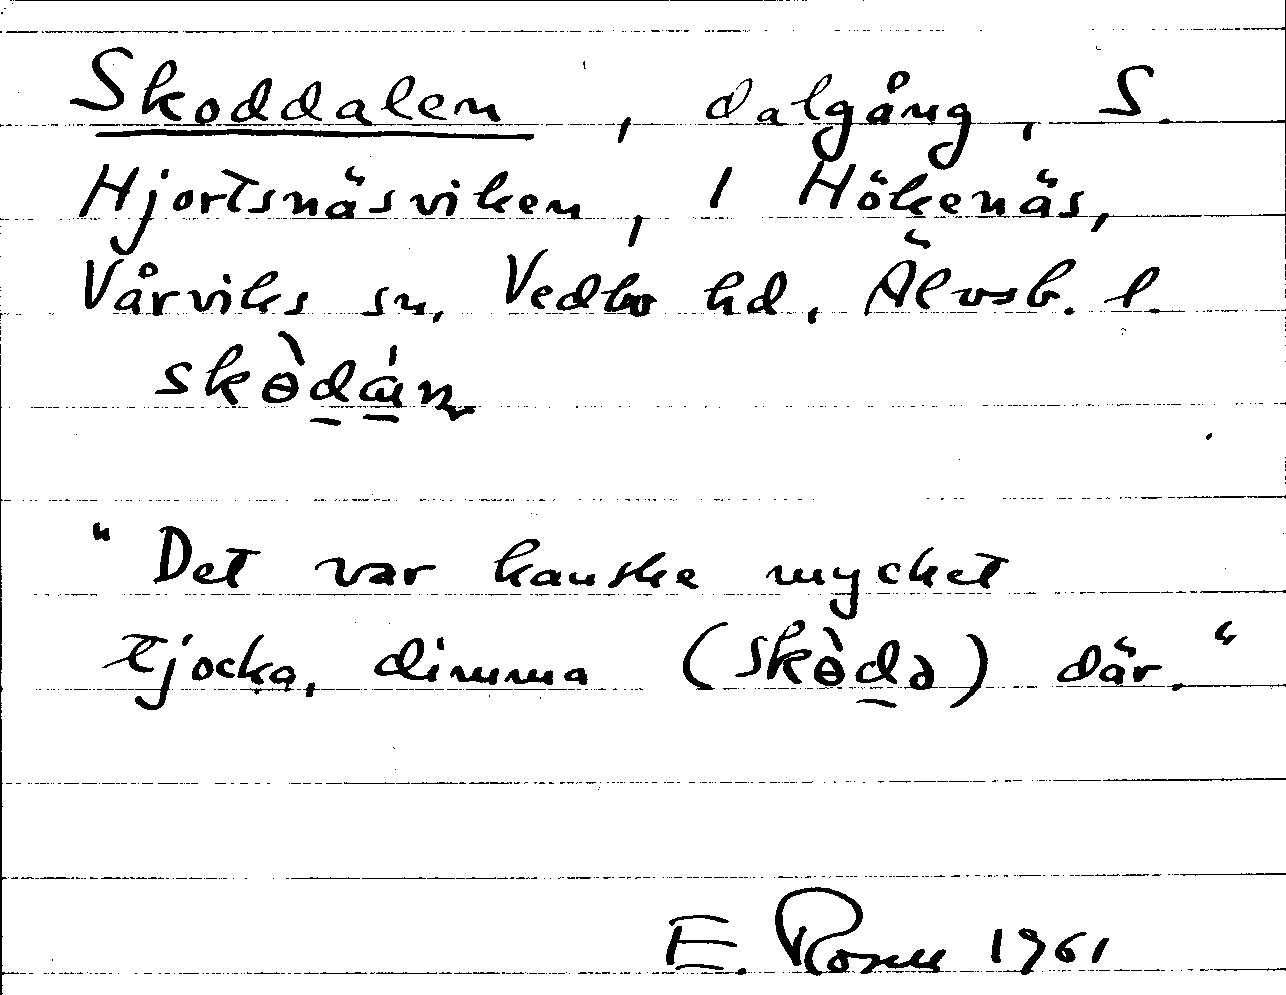 Skoddalen, dalgång, S.
Hjortsnäsviken, 1 Hökenäs,
Vårviks sn, Vedbo hd, Älvsb. l.
skɵ̀dán
"Det var kanske mycket
tjocka, dimma (skɵ̀də) där."
E. Rosell 1961